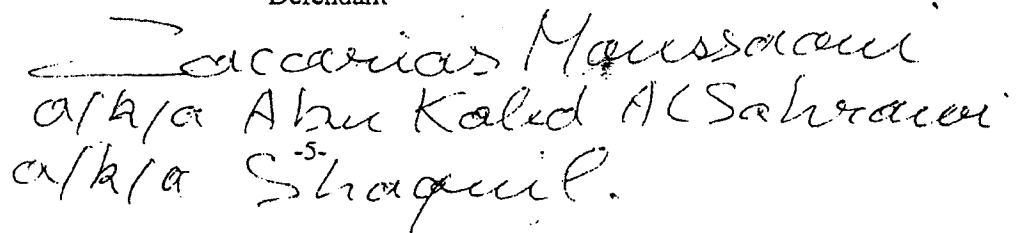 Defendant
Zaccarias Moussaoui
a/k/a Abu Kaled Al Sahraoui
-5-
a/k/a Shaquil.